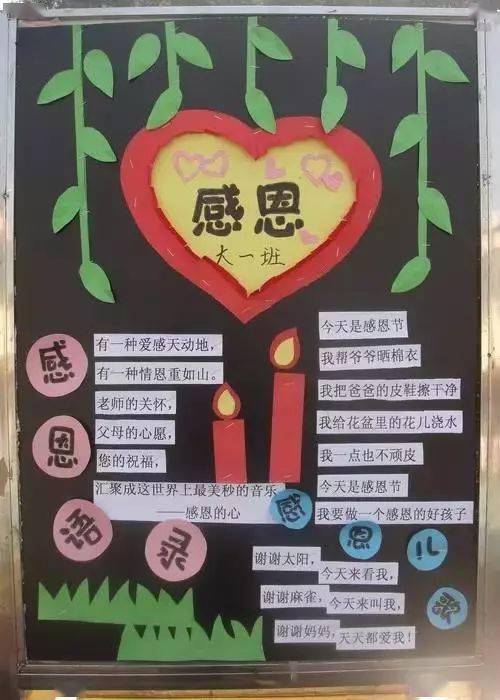 感恩
大一班
感恩语录
有一种爱感天动地，
有一种情恩重如山。
老师的关怀，
父母的心愿，
您的祝福，
汇聚成这世界上最美秒的音乐
——感恩的心
今天是感恩节
我帮爷爷晒棉衣
我把爸爸的皮鞋擦干净
我给花盆里的花儿浇水
我一点也不顽皮
今天是感恩节
我要做一个感恩的好孩子
感恩儿歌
谢谢太阳，今天来看我，
谢谢麻雀，今天来叫我，
谢谢妈妈，天天都爱我！